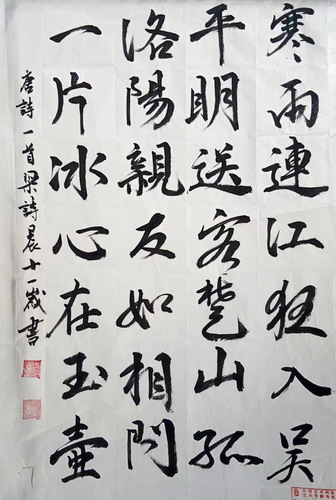 寒雨連江狂入吴
平明送客楚山孤
洛陽親友如相問
一片冰心在玉壺
唐詩一首梁詩晨十一歲書